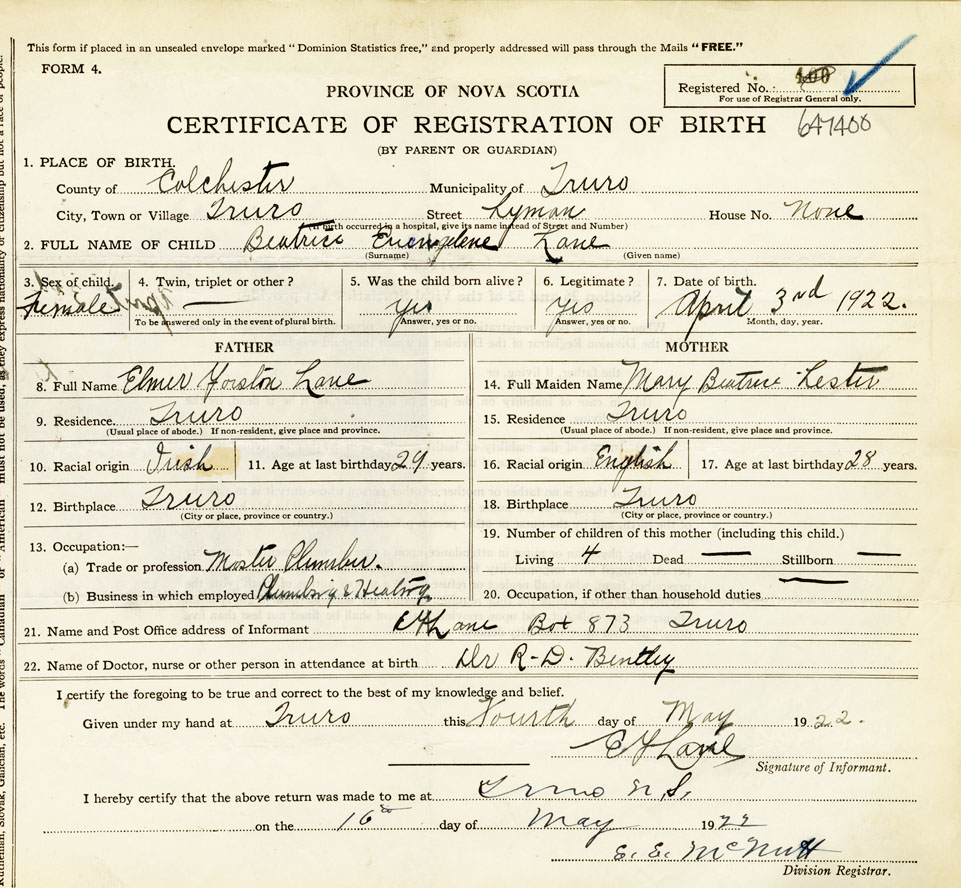 This form if placed in an unsealed envelope marked “Dominion Statistics free,” and properly addressed will pass through the Mails “FREE.”
FORM 4.
Registered No. 400
For use of Registrar General only.
PROVINCE OF NOVA SCOTIA
CERTIFICATE OF REGISTRATION OF BIRTH 647400
(BY PARENT OR GUARDIAN)
1. PLACE OF BIRTH.
County of Colchester Municipality of Truro
City, Town or Village Truro Street Lyman House No. None
(If birth occurred in a hospital, give its name instead of Street and Number)
2. FULL NAME OF CHILD Beatrice Evangelene Lane
(Surname) (Given name)
3. Sex of child. 4. Twin, triplet or other? 5. Was the child born alive? 6. Legitimate? 7. Date of birth.
Female — yes yes April 3rd 1922.
To be answered only in the event of plural birth. Answer, yes or no. Answer, yes or no. Month, day, year.
FATHER
8. Full Name Elmer Yorston Lane
9. Residence. Truro
(Usual place of abode.) If non-resident, give place and province.
10. Racial origin Irish 11. Age at last birthday 29 years.
12. Birthplace Truro
(City or place, province or country.)
13. Occupation:—
(a) Trade or profession Master Plumber.
(b) Business in which employed Plumbing & Heating
MOTHER
14. Full Maiden Name Mary Beatrice Lester
15. Residence Truro
(Usual place of abode.) If non-resident, give place and province.
16. Racial origin English 17. Age at last birthday 28 years.
18. Birthplace Truro
(City or place, province or country.)
19. Number of children of this mother (including this child.)
Living 4 Dead — Stillborn —
20. Occupation, if other than household duties —
21. Name and Post Office address of Informant E Y Lane Box 873 Truro
22. Name of Doctor, nurse or other person in attendance at birth Dr R-D. Bentley
I certify the foregoing to be true and correct to the best of my knowledge and belief.
Given under my hand at Truro this Fourth day of May 1922.
E Y Lane
Signature of Informant.
I hereby certify that the above return was made to me at Truro N.S.
on the 16th day of May 1922
E. E. McNutt
Division Registrar.